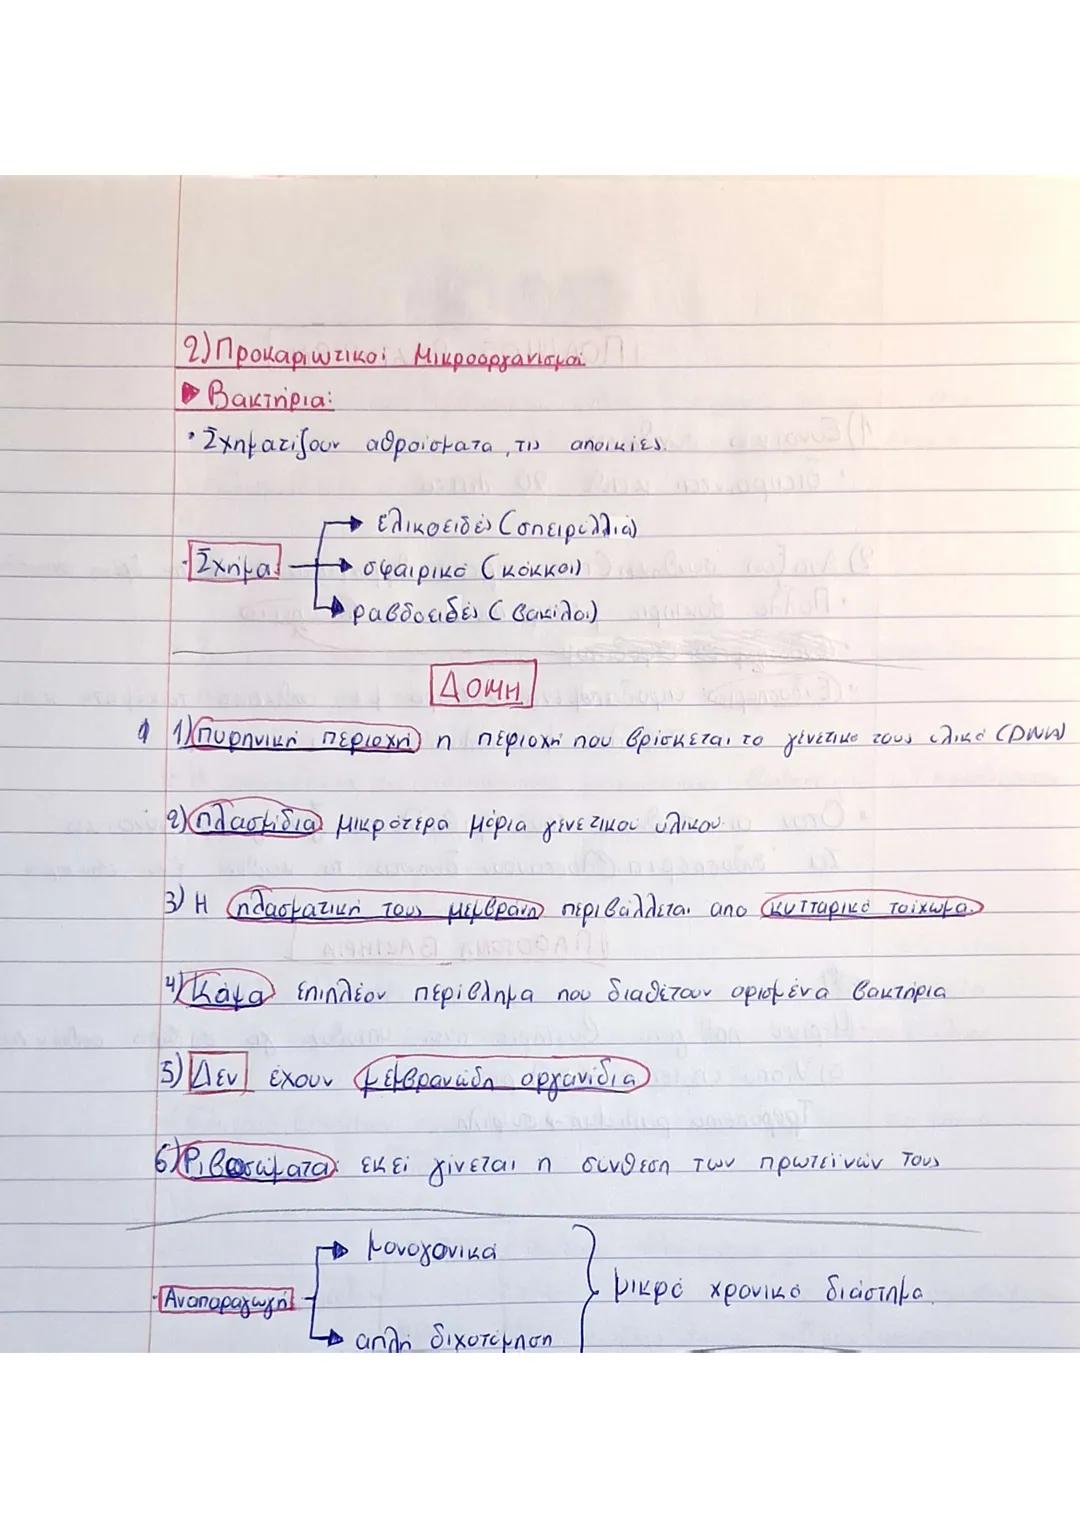 2) Προκαριωτικοί Μικροοργανισμοί
Βακτήρια:
• Σχηματίζουν αθροίσματα, τις αποικίες.
ελικοειδές (σπειρύλλια)
• Σχήμα σφαιρικό (κόκκοι)
ραβδοειδές (βακίλοι)
ΔΟΜΗ
1) Πυρηνική περιοχή η περιοχή που βρίσκεται το γενετικό τους υλικό (DNA)
2) πλασμίδια μικρότερα μόρια γενετικού υλικού.
3) Η πλασματική τους μεμβράνη περιβάλλεται από κυτταρικό τοίχωμα.
4) Κάψα επιπλέον περίβλημα που διαθέτουν ορισμένα βακτήρια
5) Δεν έχουν μεμβρανώδη οργανίδια
6) Ριβοσώματα: εκεί γίνεται η σύνθεση των πρωτεϊνών τους
μονογονικά
• Αναπαραγωγή μικρό χρονικό διάστημα.
απλή διχοτόμηση